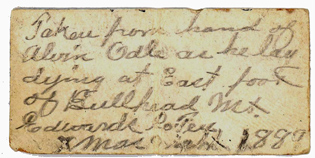 Taken from hand of
Alvin Odle as he lay
dying at East foot
of Bullhead Mt.
Edwards
Xmas 1889